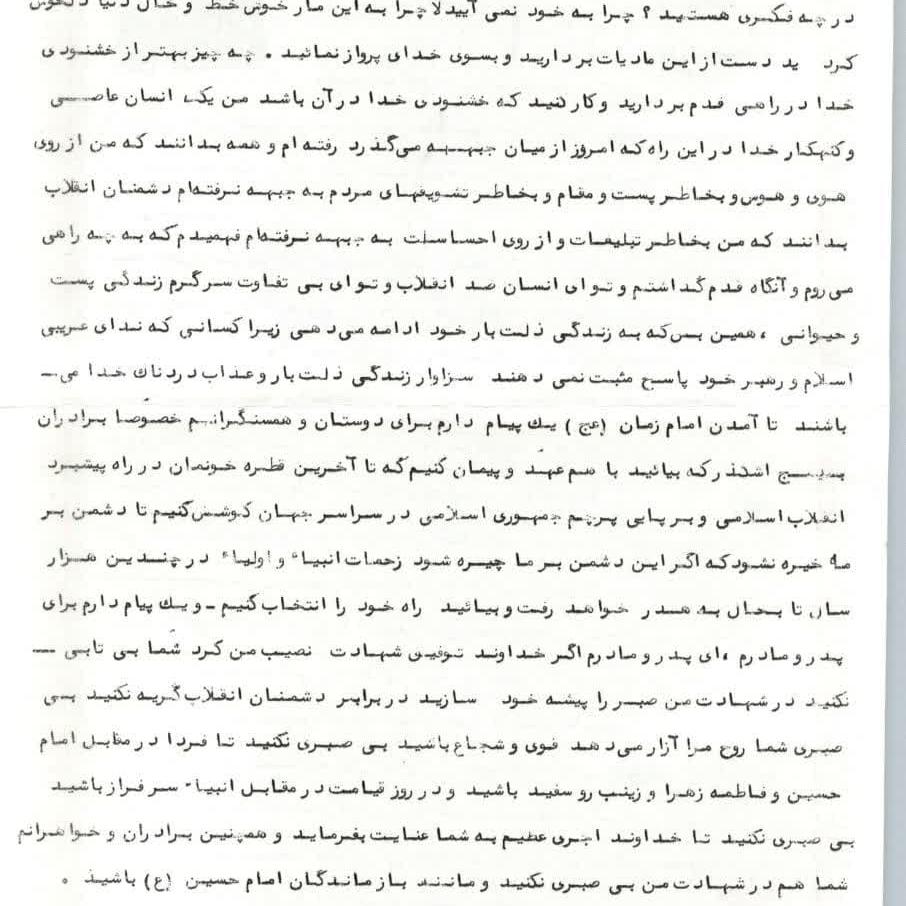 در چه فکری هستید ؟ چرا به خود نمی آیید چرا به این مار خوش خط و خال دنیا دلخوش
کرد ید دست از این مادیات بردارید و بسوی خدای پرواز نمائید . چه چیز بهتر از خشنودی
خدا در راهی قدم بردارید و کار کنید که خشنودی خدا در آن باشد من یک انسان عاصی
و گنهکار خدا در این راه که امروز از میان جبهه می‌گذرد رفته ام و همه بدانند که من از روی
هوی و هوس و بخاطر پست و مقام و بخاطر تشویقهای مردم به جبهه نرفته‌ام دشمنان انقلاب
بدانند که من بخاطر تبلیغات و از روی احساسات به جبهه نرفته‌ام فهمیدم که به چه راهی
می روم و آنگاه قدم گذاشتم و تو ای انسان ضد انقلاب و تو ای بی تفاوت سرگرم زندگی پست
و حیوانی ، همین بس که به زندگی ذلت بار خود ادامه می‌دهی زیرا کسانی که ندای غریبی
اسلام و رهبر خود پاسخ مثبت نمی دهند سزاوار زندگی ذلت بار و عذاب دردناک خدا می ـ
باشند تا آمدن امام زمان (عج) یک پیام دارم برای دوستان و همسنگرانم خصوصا برادران
بسیج اشکذر که بیائید با هم عهد و پیمان کنیم که تا آخرین قطره خونمان در راه پیشبرد
انقلاب اسلامی و برپایی پرچم جمهوری اسلامی در سراسر جهان کوشش کنیم تا دشمن بر
ما خیره نشود که اگر این دشمن بر ما چیره شود زحمات انبیاء و اولیاء در چندین هزار
سال تا بحال به هدر خواهد رفت و بیائید راه خود را انتخاب کنیم ـ و یک پیام دارم برای
پدر و مادرم ، ای پدر و مادرم اگر خداوند توفیق شهادت نصیب من کرد شما بی تابی ـ
نکنید در شهادت من صبر را پیشه خود سازید در برابر دشمنان انقلاب گریه نکنید بی
صبری شما روح مرا آزار می‌دهد قوی و شجاع باشید بی صبری نکنید تا فردا در مقابل امام
حسین و فاطمه زهرا و زینب رو سفید باشید و در روز قیامت در مقابل انبیاء سرفراز باشید
بی صبری نکنید تا خداوند اجری عظیم به شما عنایت بفرماید و همچنین برادران و خواهرانم
شما هم در شهادت من بی صبری نکنید و مانند بازماندگان امام حسین (ع) باشید .